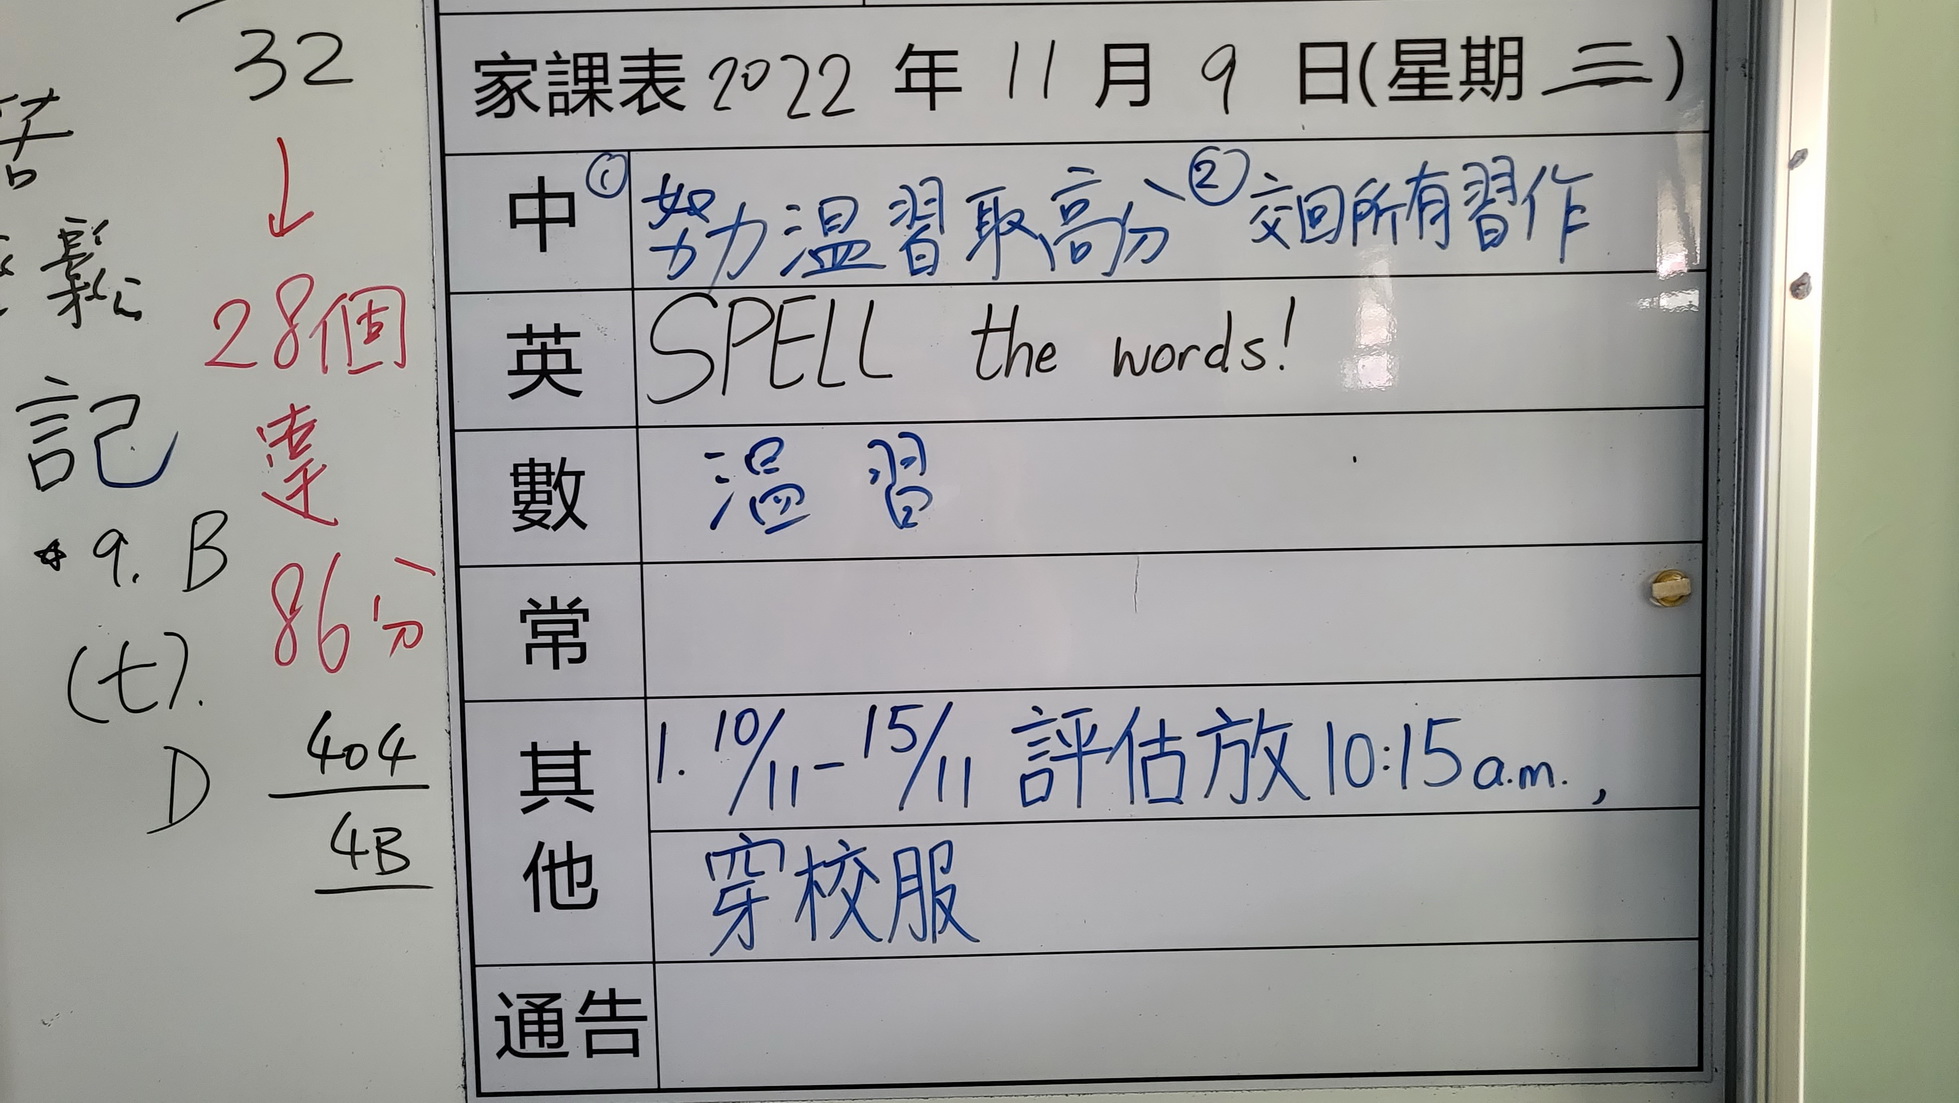 32
↓
28個
達
86分
鬆
記
9. B
(七).
D
404
4B
家課表 2022 年 11 月 9 日(星期 三)
中 ① 努力溫習取高分、② 交回所有習作
英 SPELL the words!
數 溫習
常
其他 1. 10/11 - 15/11 評估放 10:15 a.m. ,
穿校服
通告